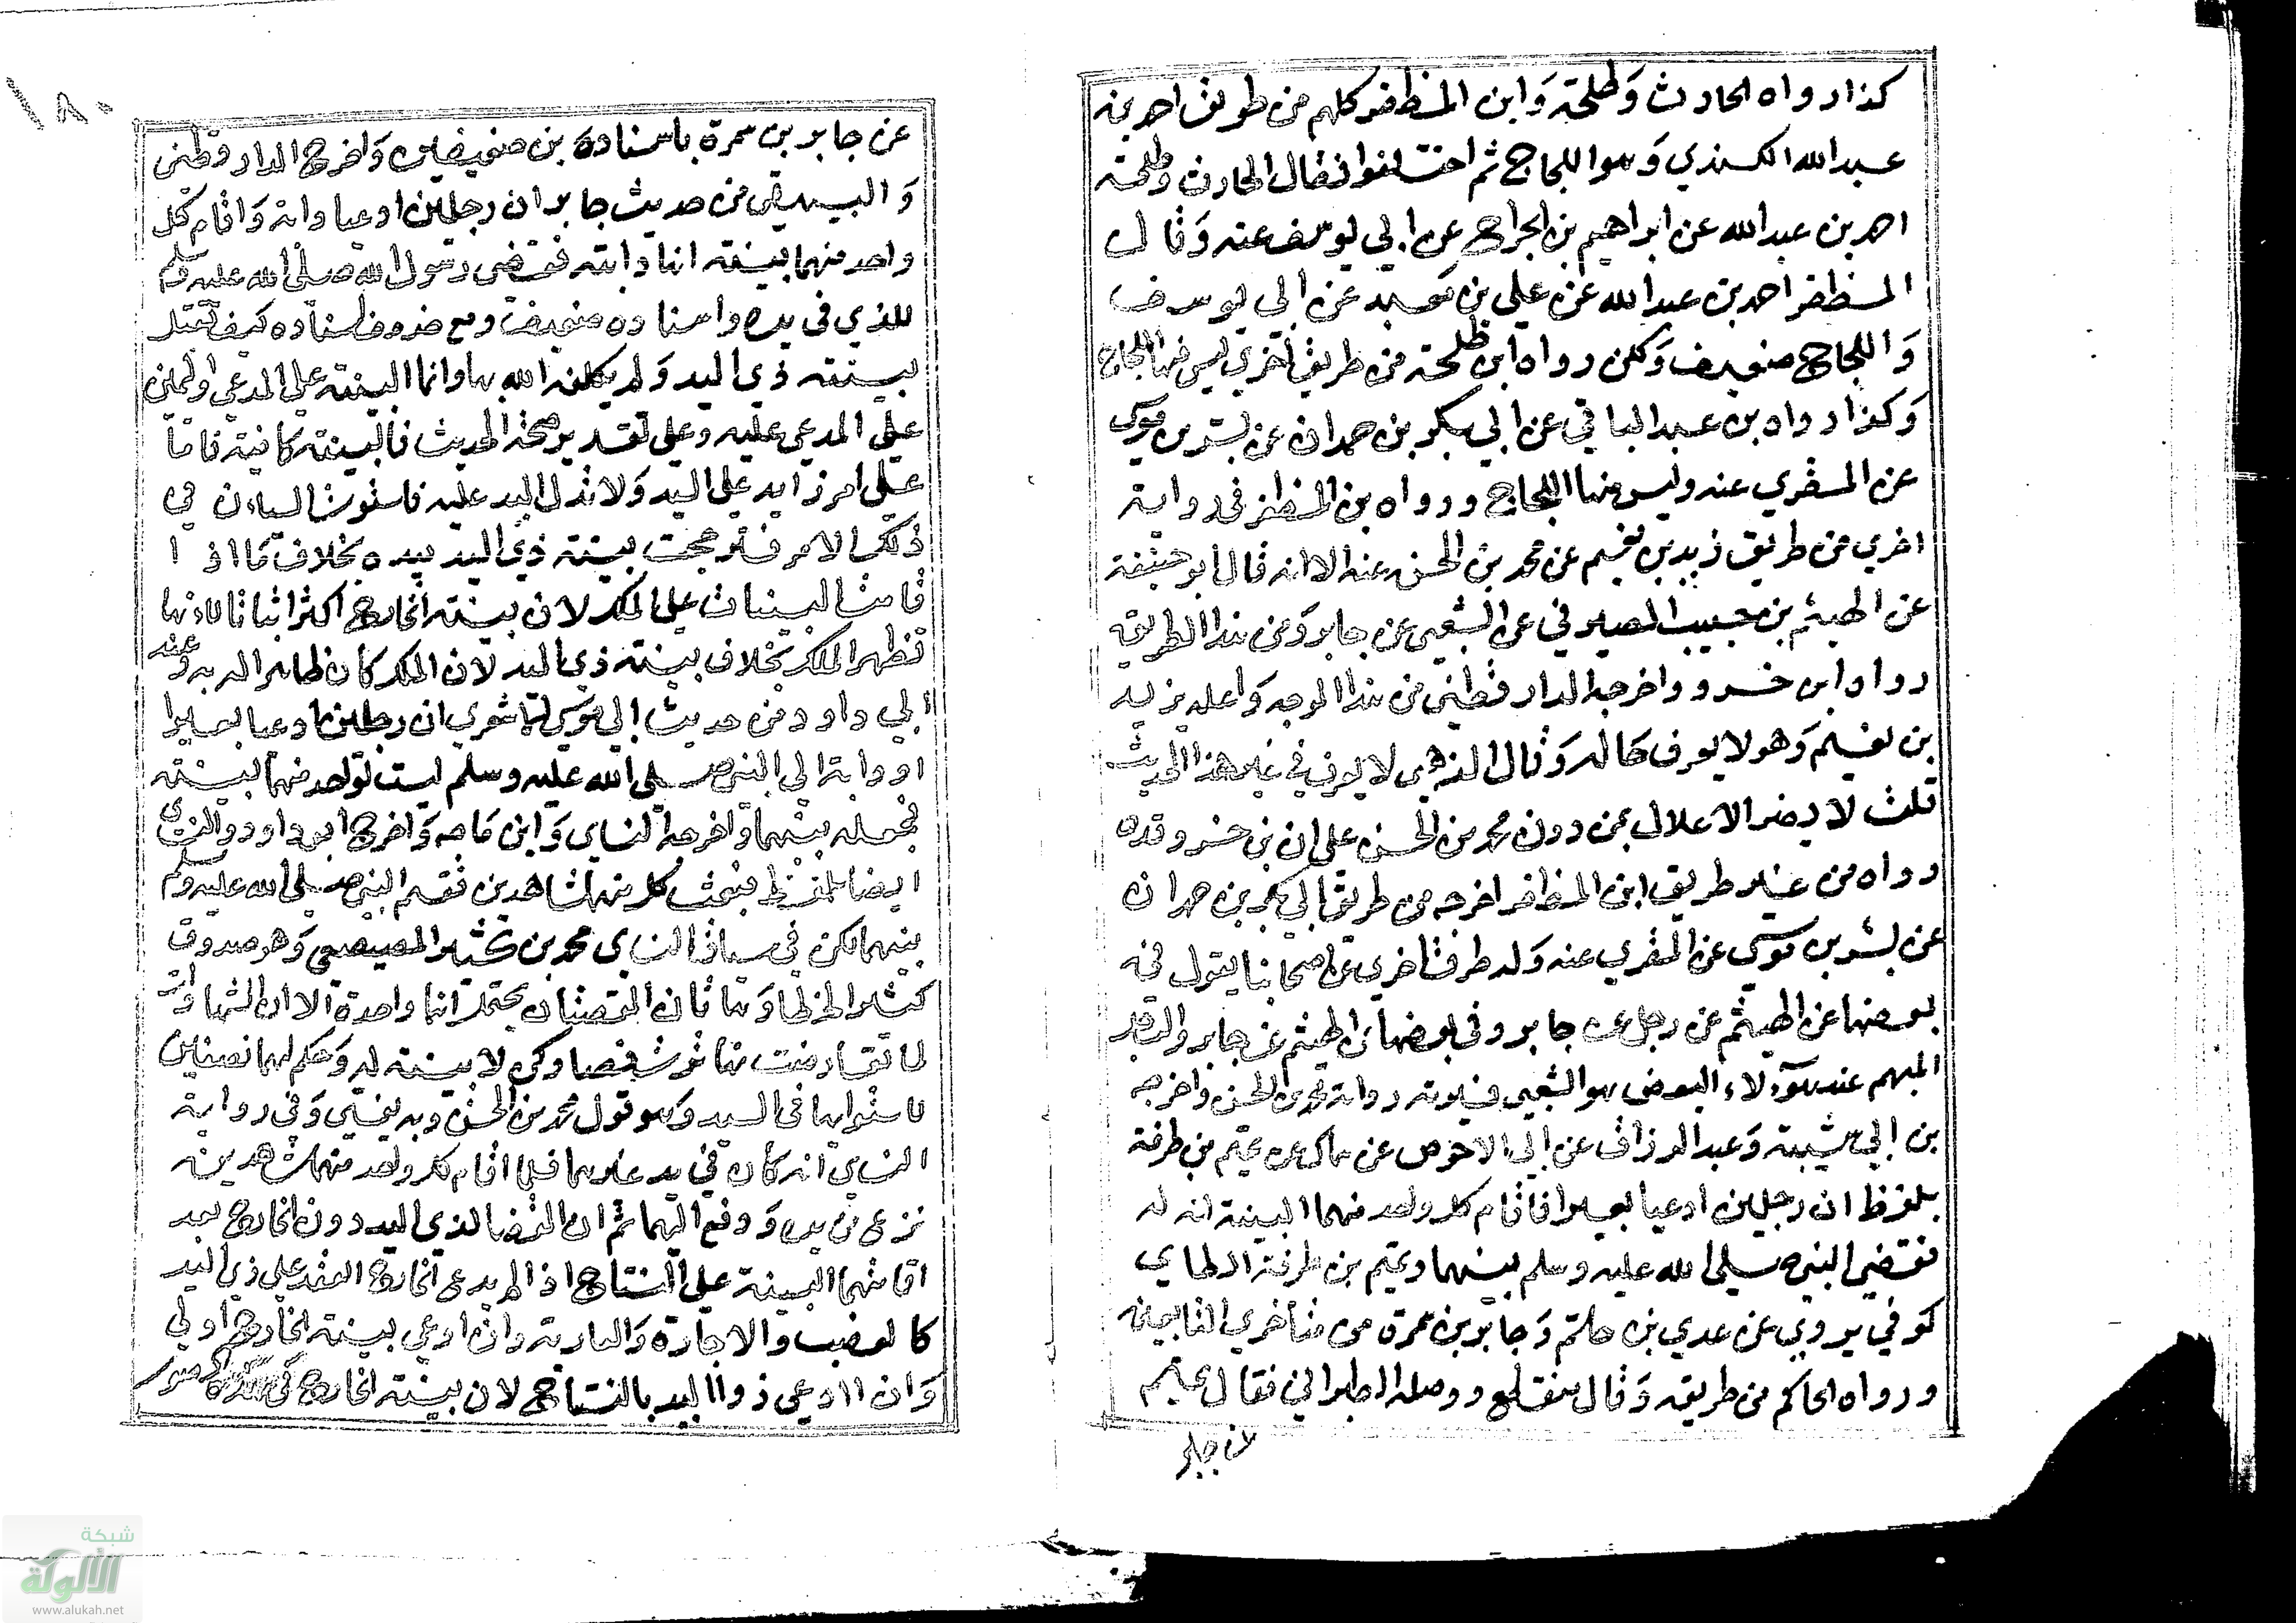 كذا رواه الحارث وطلحة وابن المظفر كلهم من طريق احمد بن
عبد الله الكندي وهو اللجاج ثم اختلفوا فقال الحارث وطلحة
احمد بن عبد الله عن ابراهيم بن الجراح عن ابي يوسف عنه وقال
المظفر احمد بن عبد الله عن علي بن معبد عن ابي يوسف
واللجاج ضعيف ولكن رواه ابن طلحة من طريق اخرى ليس فيها اللجاج
وكذا رواه بن عبد الباقي عن ابي بكر بن حمدان عن بشر بن موسى
عن المقري عنه وليس فيها اللجاج ورواه بن المظفر في رواية
اخرى من طريق زيد بن نعيم عن محمد بن الحسن عنه الا انه قال ابو حنيفة
عن الهيثم بن حبيب الصيرفي عن الشعبي عن جابر ومن هذا الطريق
رواه ابن خسرو واخرجه الدارقطني من هذا الوجه واعله بزيد
بن نعيم وهو لا يعرف حاله وقال الذهبي لا يعرف في غير هذا الحديث
قلت لا يضر الاعلال بمن دون محمد بن الحسن على ان بن خسرو قد
رواه من غير طريق ابن المظفر اخرجه من طريق ابي بكر بن حمدان
عن بشر بن موسى عن المقري عنه وله طرق اخرى عن اصحابنا يقول فيه
بعضها عن الهيثم عن رجل عن جابر وفي بعضها عن الهيثم عن جابر والرجل
المبهم عند هؤلاء البعض هو الشعبي رواية محمد بن الحسن واخرجه
بن ابي شيبة وعبد الرزاق عن ابي الاحوص عن سماك عن تميم بن طرفة
بلفظ ان رجلين ادعيا بعيرا فاقام كل واحد منهما البينة انه له
فقضى النبي صلى الله عليه وسلم بينهما وتميم بن طرفة الطاي
كوفي يروي عن عدي بن حاتم وجابر بن سمرة من متأخري التابعين
ورواه الحاكم من طريقه وقال منقطع ووصله الطبراني فقال تميم
عن جابر
١٨٠
عن جابر بن سمرة باسنادين ضعيفين واخرج الدارقطني
والبيهقي من حديث جابر ان رجلين ادعيا دابة واقام كل
واحد منهما بينة انها دابته فقضى رسول الله صلى الله عليه وسلم
للذي في يده واسناده ضعيف ومع ضعف اسناده كيف تقبل
بينة ذي اليد ولم يكلفه الله بها وانما البينة على المدعي واليمين
على المدعى عليه وعلى تقدير صحة الحديث فالبينة كانت قامتا
على امر زايد على اليد ولا تدل اليد عليه فاستوت البينتان في
ذلك الامر فترجحت بينة ذي اليد بيده بخلاف ما اذا
قامت البينات على الملك لان بينة الخارج اكثر اثباتا لانها
تظهر الملك بخلاف بينة ذي اليد لان الملك كان ظاهرا له به وعند
ابي داود من حديث ابي موسى الاشعري ان رجلين ادعيا بعيرا
او دابة الى النبي صلى الله عليه وسلم ليست لواحد منهما بينة
فجعله بينهما واخرجه النساي وابن ماجه واخرج ابو داود والنساي
ايضا بلفظ فبعث كل منهما شاهدين فقسم النبي صلى الله عليه وسلم
بينهما لكن في سياق النساي محمد بن كثير المصيصي وهو صدوق
كثير الخطا وهاتان القصتان يحتمل انها واحدة الا ان الشهادات
لما تعارضت تهاترت فصار كمن لا بينة له وحكم لهما نصفين
لاستوائهما في اليد وهو قول محمد بن الحسن وبه يفتى وفي رواية
النساي انه كان في يد غيرهما فلما اقام كل واحد منهما شاهدين
نزع من يده ودفع اليهما ثم ان القضا لذي اليد دون الخارج بعد
اقامتهما البينة على النتاج اذا لم يدع الخارج العقد على ذي اليد
كالغصب والاجارة والعارية وان ادعى بينة الخارج اولى
وان ادعى ذو اليد بالنتاج لان بينة الخارج في
شبكة
الألوكة
www.alukah.net